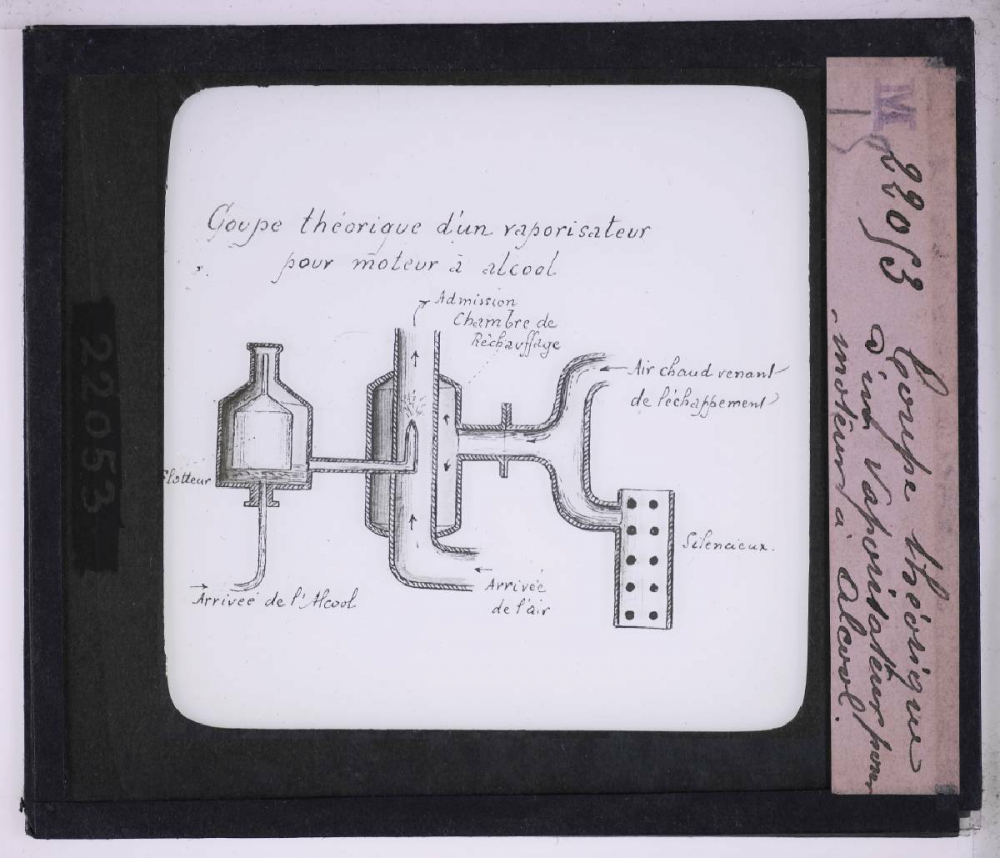 Coupe théorique d'un vaporisateur
pour moteur à alcool
Admission
Chambre de
Réchauffage
Air chaud venant
de l'échappement
Flotteur
Silencieux.
Arrivée de l'Alcool
Arrivée
de l'air
22053
M
22053 Coupe théorique
d'un vaporisateur pour
moteur à alcool.